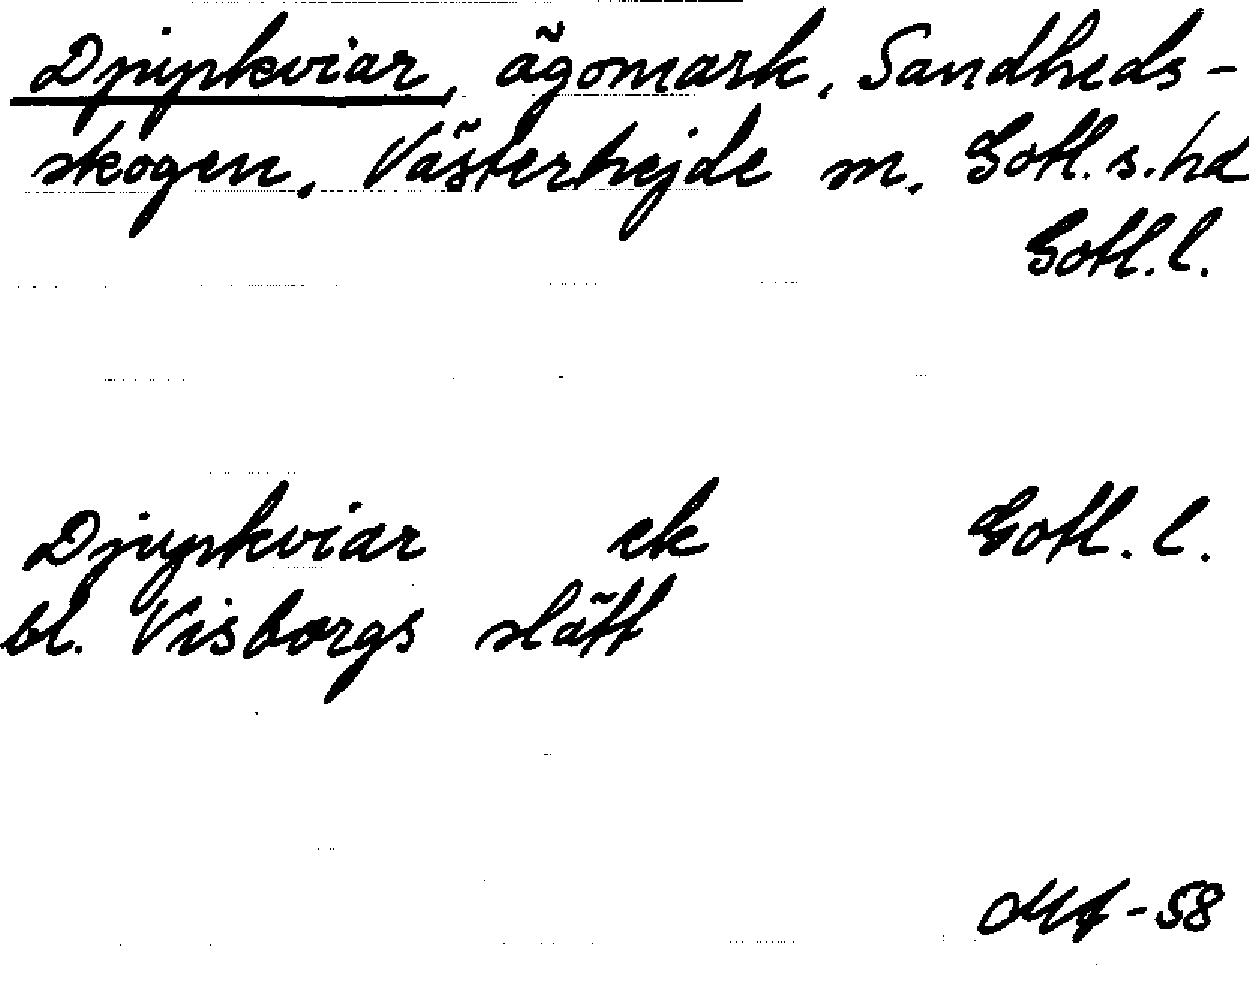 Djupkviar, ägomark, Sandheds-
skogen, Västerhejde sn. Gotl. s. hd
Gotl. l.
Djupkviar ek Gotl. l.
bl. Visborgs slätt
-58